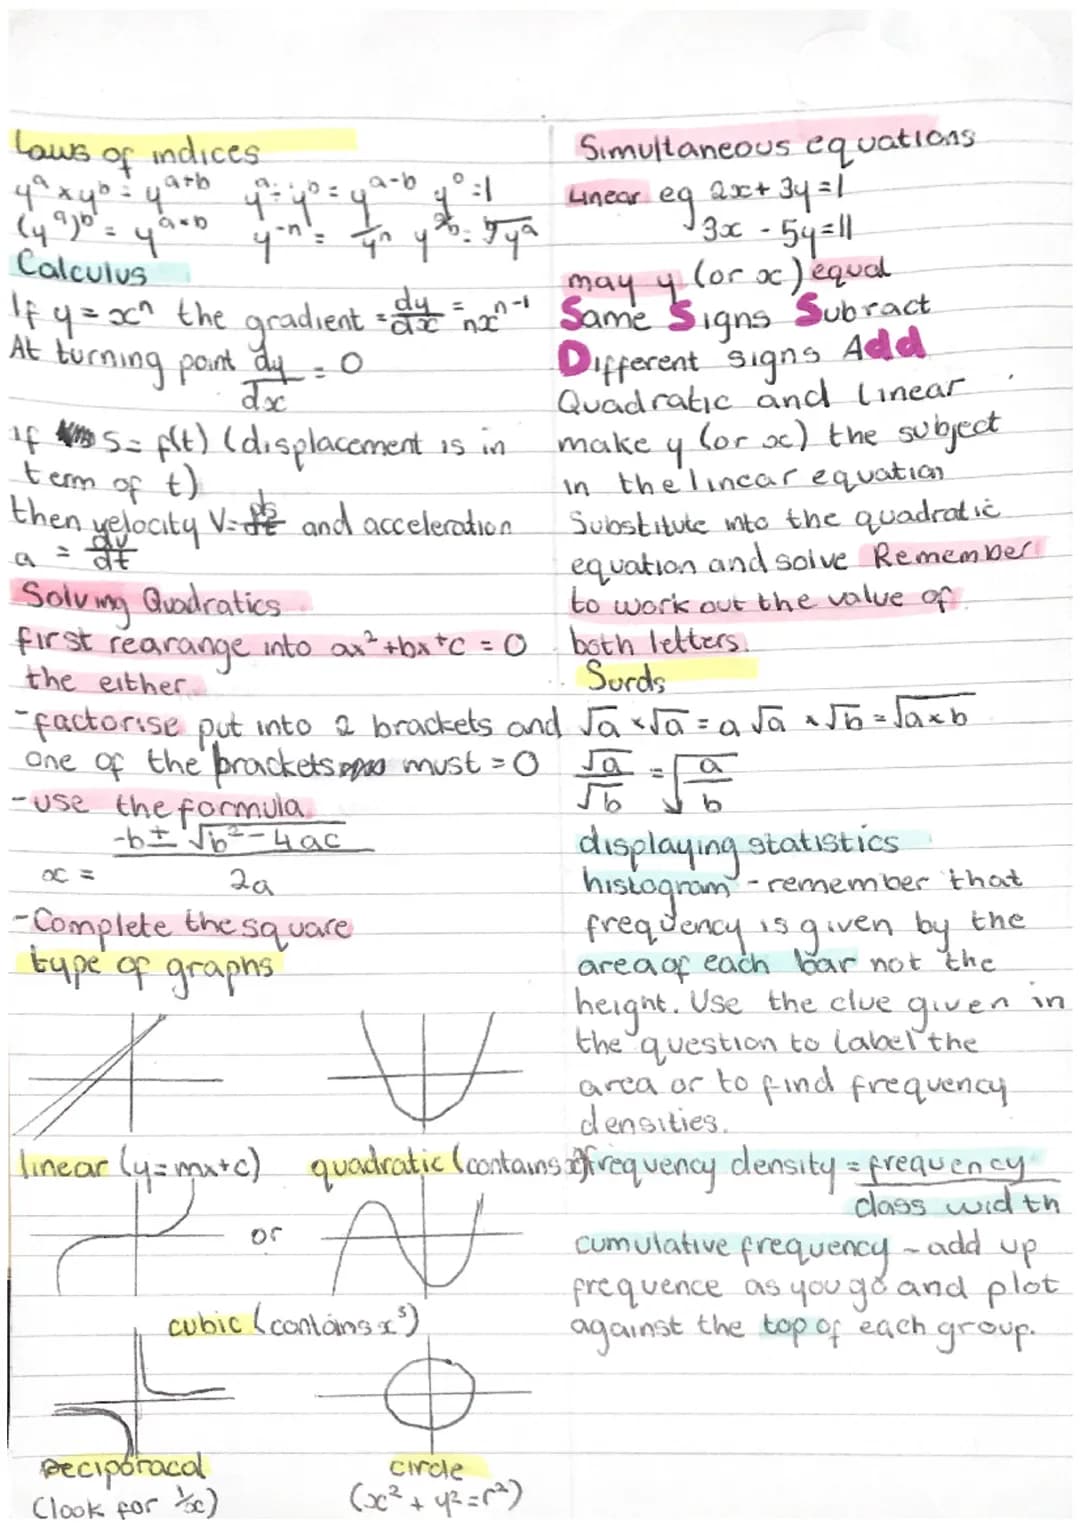 Laws of indices
yᵃ × yᵇ = yᵃ⁺ᵇ yᵃ ÷ yᵇ = yᵃ⁻ᵇ y⁰ = 1
(yᵃ)ᵇ = yᵃˣᵇ y⁻ⁿ = 1/yⁿ y^(a/b) = ᵇ√yᵃ
Calculus
If y = xⁿ the gradient = dy/dx = nxⁿ⁻¹
At turning point dy/dx = 0
if s = f(t) (displacement is in
term of t)
then velocity V = ds/dt and acceleration
a = dv/dt
Solving Quadratics
first rearange into ax² + bx + c = 0
the either
- factorise put into 2 brackets and
one of the brackets must = 0
- use the formula
x = (-b ± √b² - 4ac) / 2a
- Complete the square
type of graphs
linear (y = mx + c)
quadratic (contains x²)
or
cubic (contains x³)
Reciporacal
(look for 1/x)
circle
(x² + y² = r²)
Simultaneous equations
Linear eg 2x + 3y = 1
3x - 5y = 11
may y (or x) equal
Same Signs Subract
Different signs Add
Quadratic and linear
make y (or x) the subject
in the linear equation
Substitute into the quadratic
equation and solve Remember
to work out the value of
both letters.
Surds
√a × √a = a √a × √b = √a×b
√a/√b = √a/b
displaying statistics
histogram - remember that
frequency is given by the
area of each bar not the
height. Use the clue given in
the question to label the
area or to find frequency
densities.
frequency density = frequency / class width
cumulative frequency - add up
frequence as you go and plot
against the top of each group.